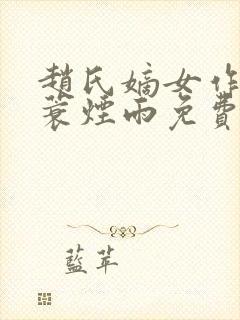 趙氏嫡女作
蓑煙雨免費
藍苹